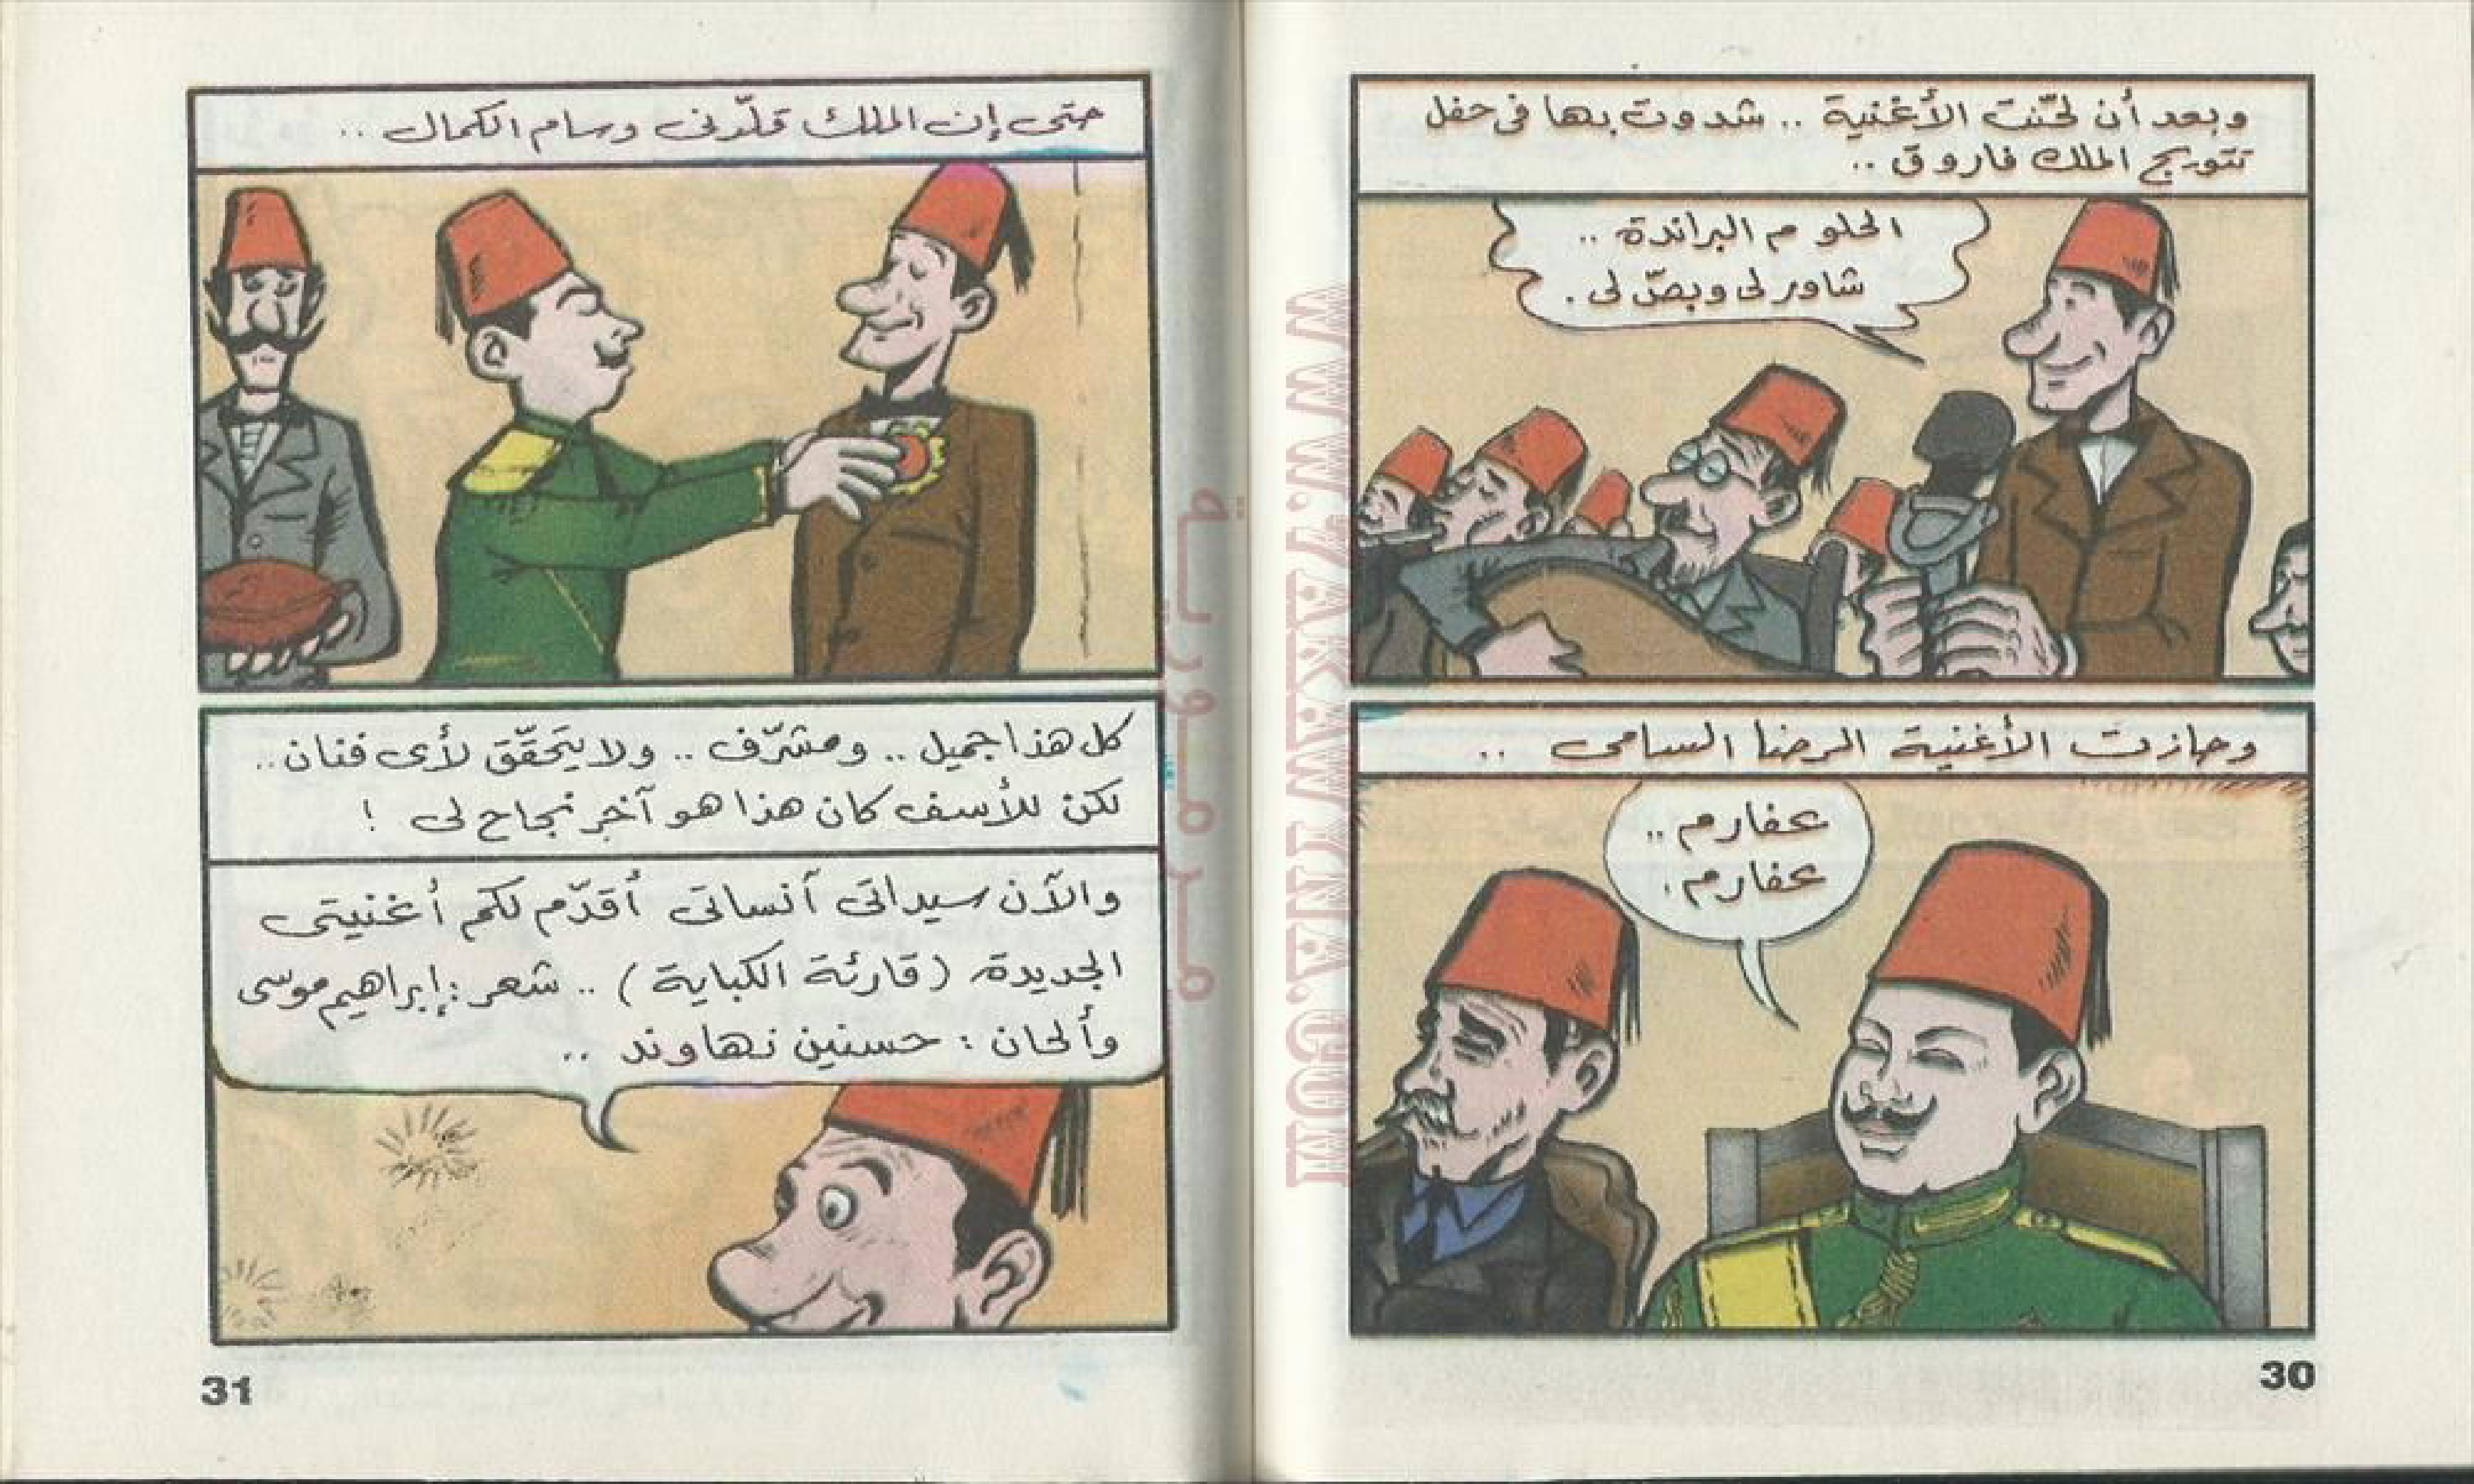 وبعد أن لحّنت الأغنية .. شدوت بها فى حفل
تتويج الملك فاروق ..
الحلو م البراندة ..
شاور لى وبصّ لى .
وحازت الأغنية الرضا السامى ..
عفارم ..
عفارم .
30
حتى إن الملك قلّدنى وسام الكمال ..
كل هذا جميل .. ومشرّف .. ولا يتحقّق لأى فنان ..
لكن للأسف كان هذا هو آخر نجاح لى !
والآن سيداتى آنساتى أقدّم لكم أغنيتى
الجديدة (قارئة الكباية) .. شعر : إبراهيم موسى
وألحان : حسنين نهاوند ..
31